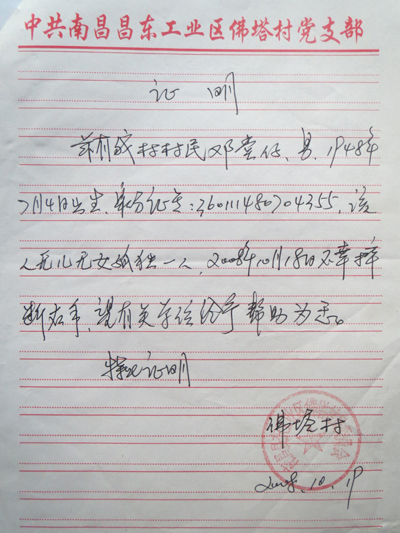 中共南昌昌东工业区佛塔村党支部
证 明
兹有我村村民邓萱仔、男、1948年
7月4日出生、身份证号:360111480704355,该
人无儿无女孤独一人,2008年10月18日不幸摔
断右手,望有关单位给予帮助为盼。
特此证明
佛塔村
2008.10.19